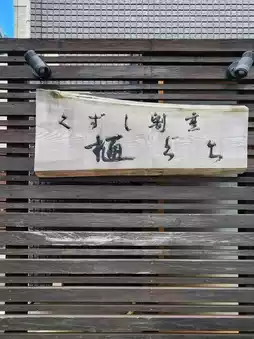 くずし割烹
樋ぐち